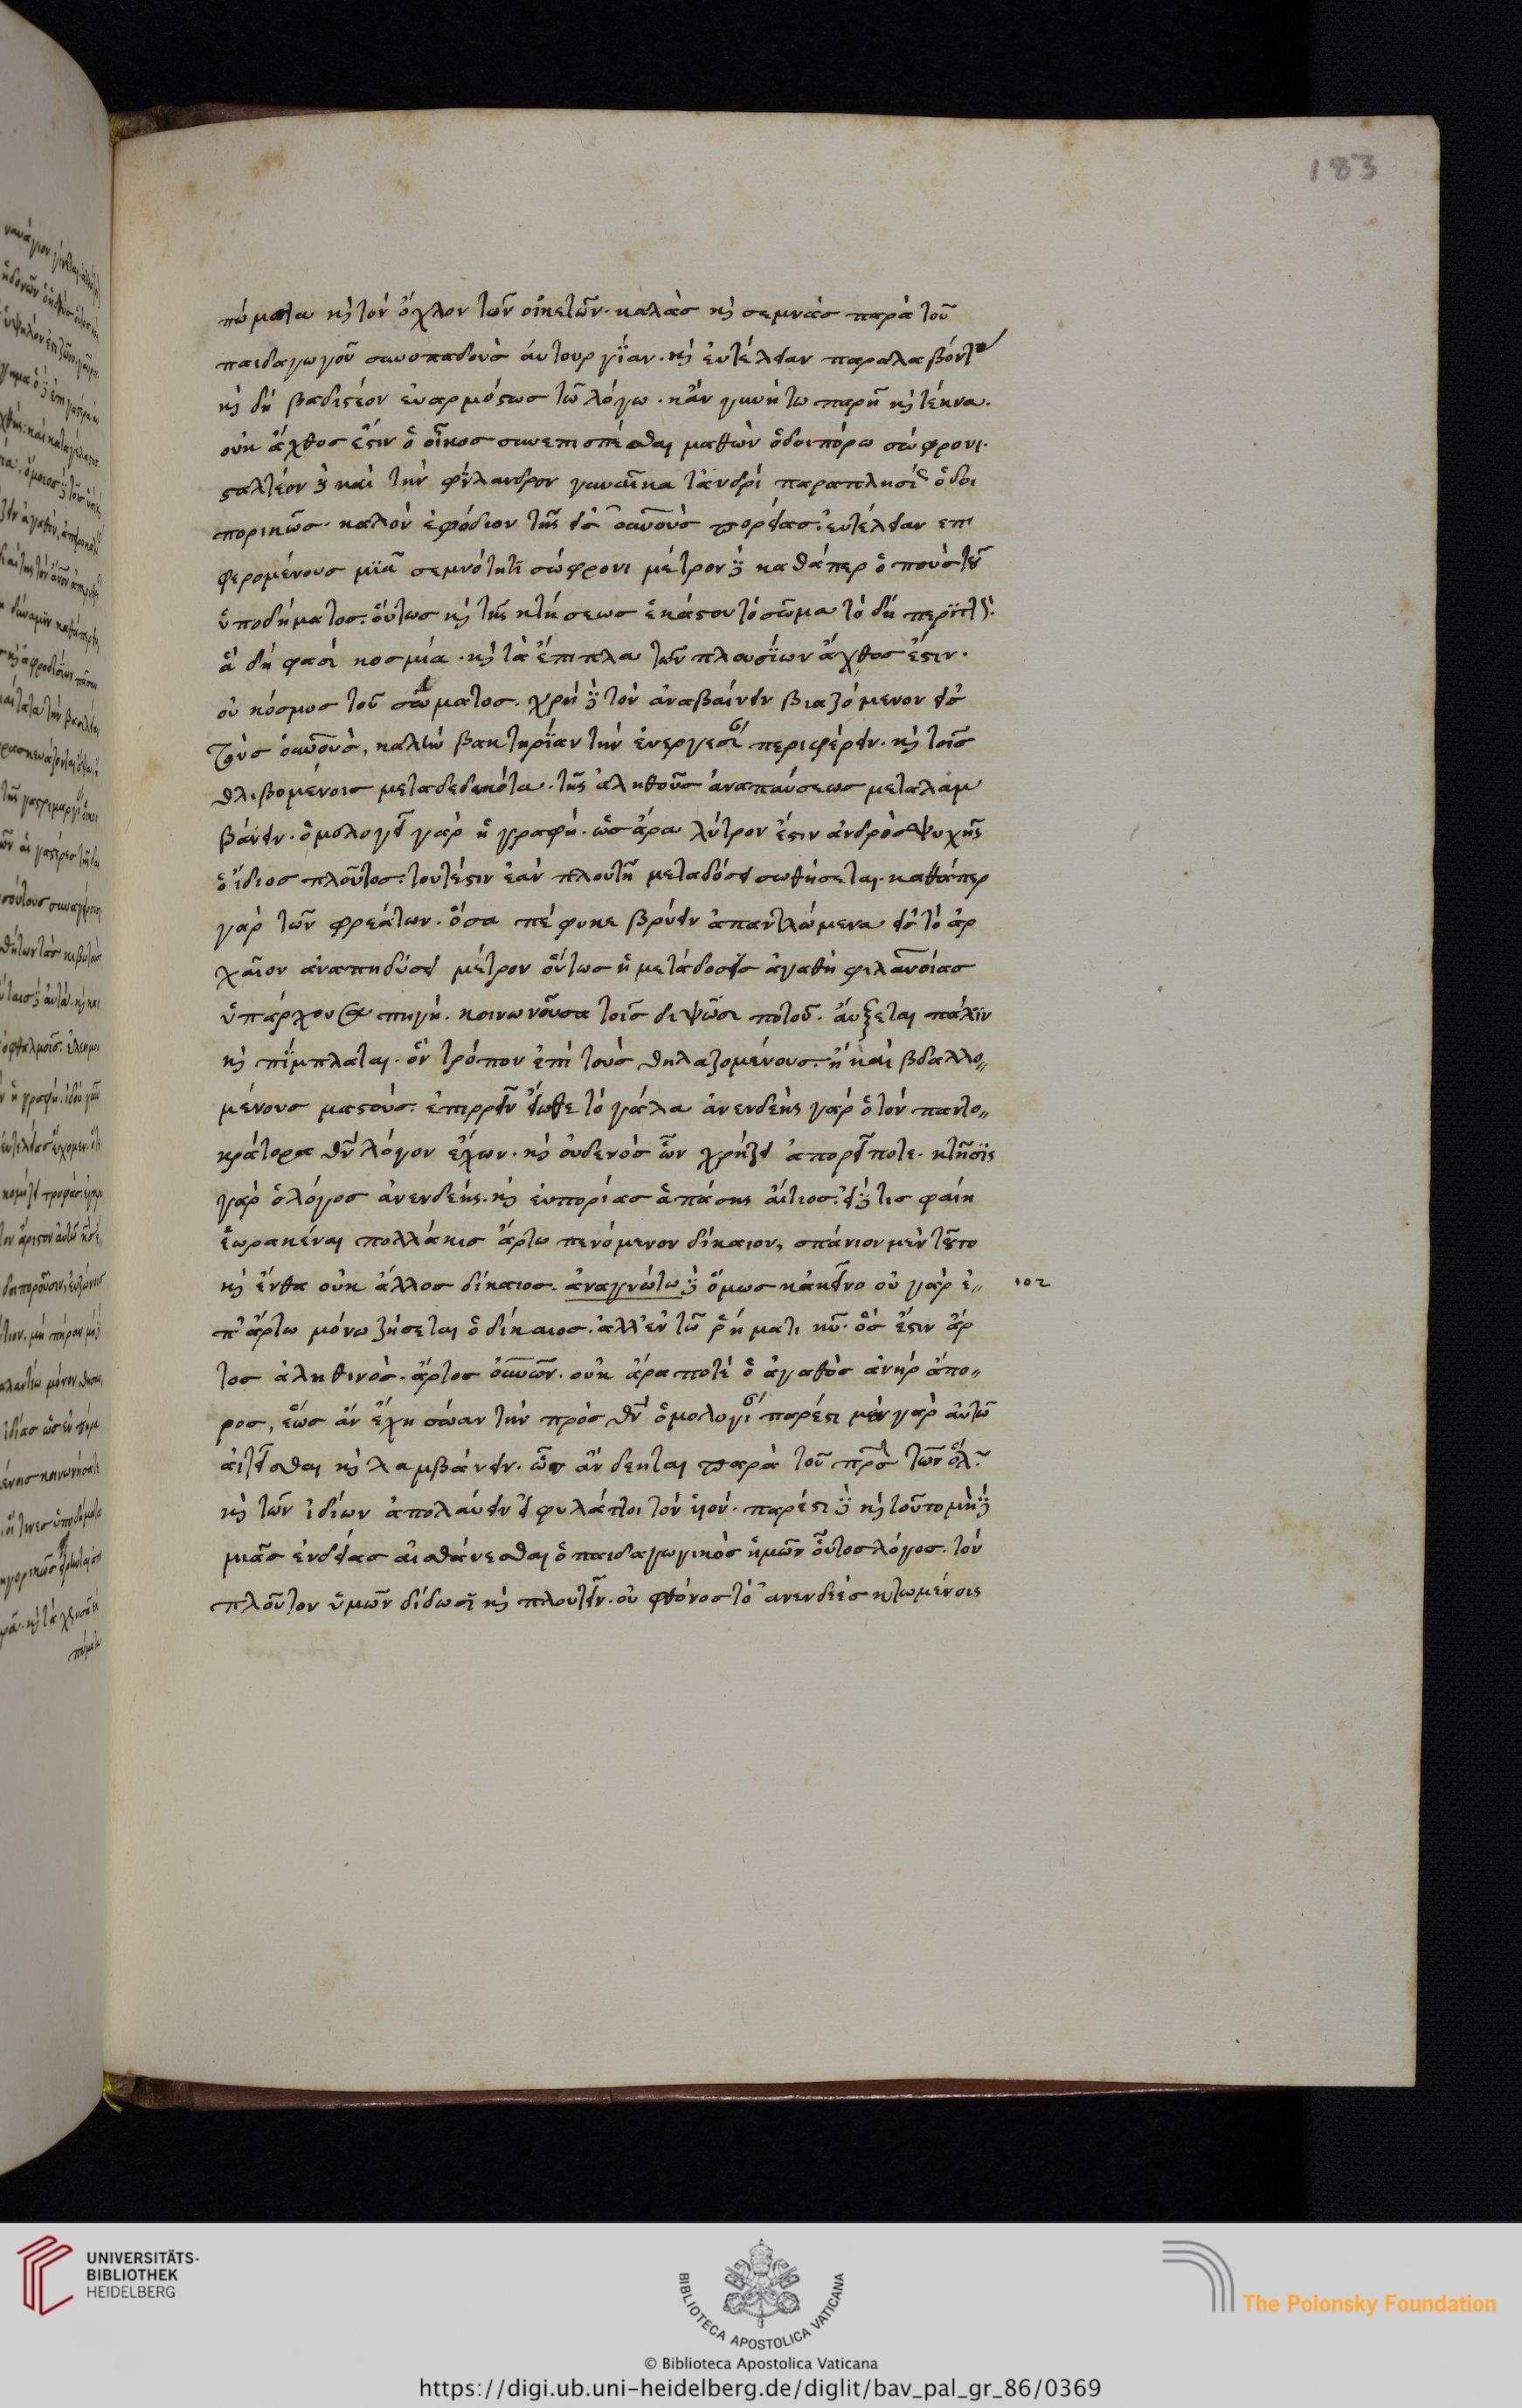 183
πώματα καὶ τὸν ὄχλον τῶν οἰκετῶν· καλὰς καὶ σεμνὰς παρὰ τοῦ
παιδαγωγοῦ συνοπαδοὺς αὐτουργίαν· καὶ εὐτέλειαν παραλαβόντας
καὶ δὴ βαδιστέον εὐαρμόστως τῶ λόγω· κἂν γυνή τω παρῆ καὶ τέκνα·
οὐκ ἄχθος ἐστὶν ὁ οἶκος συνεπισπέσθαι μαθὼν ὁδοιπόρω σώφρονι·
σταλτέον δὲ καὶ τὴν φίλανδρον γυναῖκα τἀνδρὶ παραπλησίως ὁδοι
πορικῶς· καλὸν ἐφόδιον τῆς εἰς οὐνοὺς πορείας· εὐτέλειαν ἐπι
φερομένους μιᾶ σεμνότητι σώφρονι μέτρον δὲ καθάπερ ὁ ποὺς τοῦ
ὑποδήματος· οὕτως καὶ τῆς κτήσεως ἑκάστου τὸ σῶμα τὸ δὴ περιττὸν·
ἃ δή φασι κοσμία· καὶ τὰ ἔπιπλα τῶν πλουσίων ἄχθος ἐστιν·
οὐ κόσμος τοῦ σώματος· χρὴ δὲ τὸν ἀναβαίνειν βιαζόμενον εἰς
τοὺς οὐνοὺς, καλὴν βακτηρίαν τὴν ἐνεργεσίαν περιφέρειν· καὶ τοῖς
θλιβομένοις μεταδεδωκότα· τῆς ἀληθοῦς ἀναπαύσεως μεταλαμ
βάνειν· ὁμολογεῖ γὰρ ἡ γραφή· ὡς ἄρα λύτρον ἐστιν ἀνδρὸς ψυχῆς
ὁ ἴδιος πλοῦτος· τουτέστιν ἐὰν πλουτῆ μεταδόσει σωθήσεται· καθάπερ
γὰρ τῶν φρεάτων· ὅσα πέφυκε βρύειν ἀπαντλώμενα εἰς τὸ ἀρ
χαῖον ἀναπηδύσει μέτρον οὕτως ἡ μετάδοσις ἀγαθὴ φιλανοίας
ὑπάρχουσα πηγή· κοινωνοῦσα τοῖς διψῶσι ποτοῦ· αὔξεται πάλιν
καὶ πίμπλαται· ὃν τρόπον ἐπὶ τοὺς θηλαζομένους· ἢ καὶ βδαλλο„
μένους μαστούς· ἐπιρρεῖν εἴωθε τὸ γάλα ἀνενδεὴς γὰρ ὁ τὸν παντο„
κράτορα θν λόγον ἔχων· καὶ οὐδενὸς ὧν χρήζει ἀπορεῖ ποτε· κτῆσις
γὰρ ὁ λόγος ἀνενδεής· καὶ εὐπορίας ἁπάσης αἴτιος· εἰ δέ τις φαίη
ἑωρακέναι πολλάκις ἄρτω πενόμενον δίκαιον, σπάνιον μὲν τοῦτο
καὶ ἔνθα οὐκ ἄλλος δίκαιος· ἀναγνώτω δὲ ὅμως κἀκεῖνο οὐ γὰρ ἐ„
102
π' ἄρτω μόνω ζήσεται ὁ δίκαιος· ἀλλ' ἐν τῶ ῥήματι κυ· ὅς ἐστιν ἄρ
τος ἀληθινὸς· ἄρτος οὐνῶν· οὐκ ἄρα ποτὲ ὁ ἀγαθὸς ἀνὴρ ἄπο„
ρος, ἕως ἂν ἔχη σώαν τὴν πρὸς θν ὁμολογίαν πάρεστι μὲν γὰρ αὐτῶ
αἰτεῖσθαι καὶ λαμβάνειν· ὧν ἂν δέηται παρὰ τοῦ πρς τῶν ὅλων
καὶ τῶν ἰδίων ἀπολαύειν εἰ φυλάττοι τὸν υἱόν· πάρεστι δὲ καὶ τοῦτο μηδε
μιᾶς ἐνδείας αἰσθάνεσθαι ὁ παιδαγωγικὸς ἡμῶν οὗτος λόγος· τὸν
πλοῦτον ὑμῶν δίδωσι καὶ πλουτεῖν· οὐ φθόνος τὸ ἀνενδεὲς κτωμένοις
UNIVERSITÄTS-
BIBLIOTHEK
HEIDELBERG
BIBLIOTECA APOSTOLICA VATICANA
© Biblioteca Apostolica Vaticana
The Polonsky Foundation
https://digi.ub.uni-heidelberg.de/diglit/bav_pal_gr_86/0369